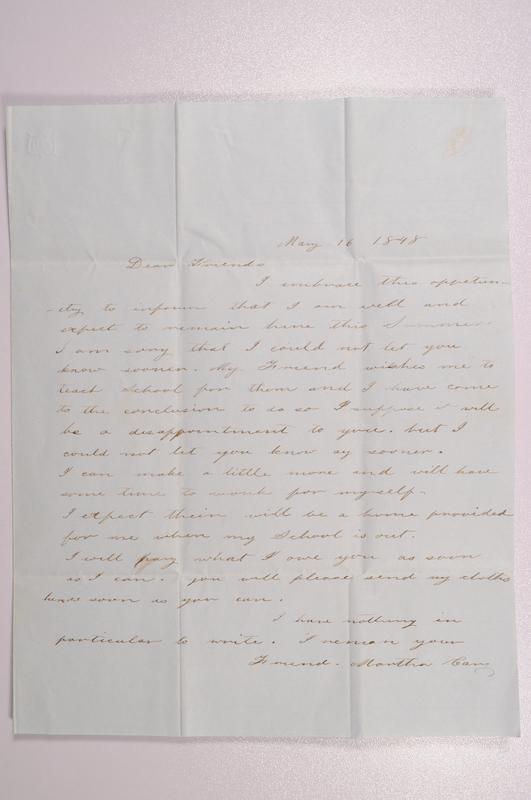 May 16 1848
Dear Friends
I embrace this oppetun-
-ity to inform that I am well and
expect to remain here this Summer
I am sory that I could not let you
know sooner. My Friend wishes me to
teach School for them and I have come
to the conclusion to do so I suppose it will
be a disappointment to you. but I
could not let you know sy sooner.
I can make a little more and will have
some time to work for myself.
I expect their will be a home provided
for me when my School is out.
I will pay what I owe you as soon
as I can. you will please send my cloths
as soon as you can.
I have nothing in
particular to write. I reman your
Friend. Martha